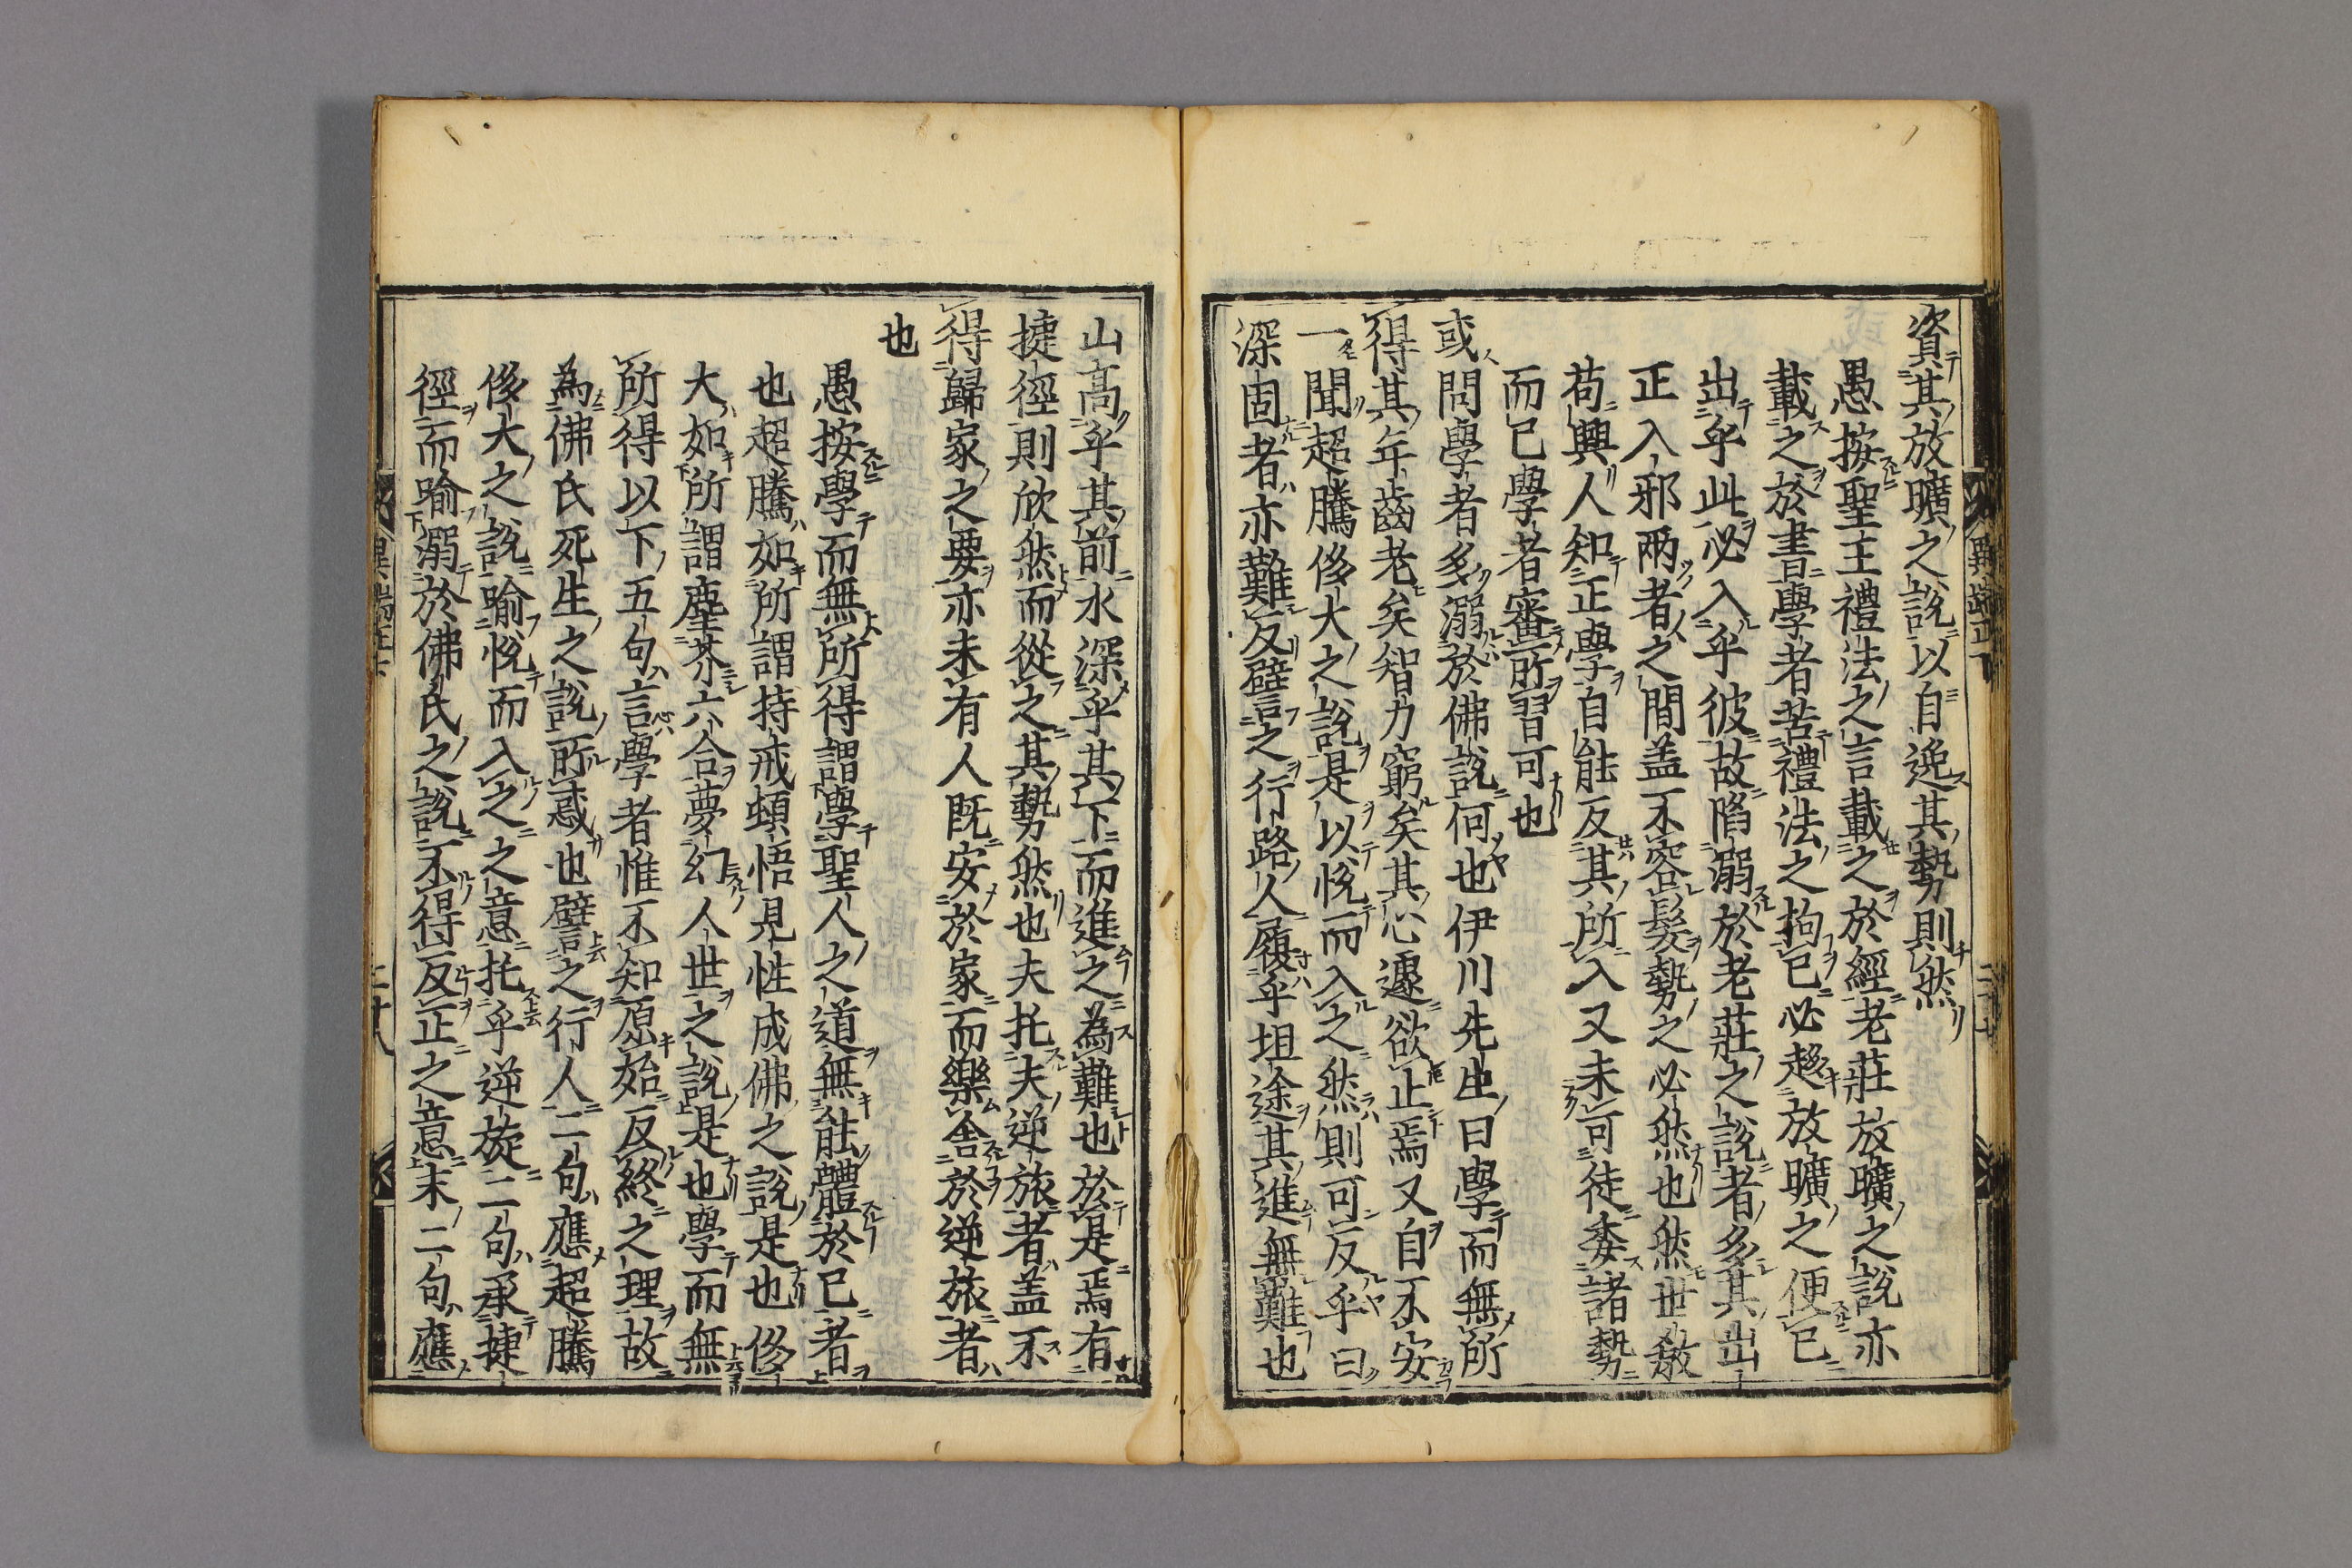 資其放曠之説以自逸其勢則然
愚按聖王禮法之言載之於經老莊放曠之説亦
載之於書學者苦禮法之拘已必趍放曠之便已
出乎此必入乎彼故陷溺於老莊之説者多其出
正入邪兩者之間盖不容髮勢之必然也然世教
苟興人知正學自能反其所入又未可徒委諸勢
而已學者審所習可也
或問學者多溺於佛説何也伊川先生曰學而無所
得其年齒老矣智力窮矣其心遽欲止焉又自不安
一聞超騰侈大之説是以悅而入之然則可反乎曰
深固者亦難反譬之行路人履乎坦途其進無難也
山高乎其前水深乎其下而進之為難也於是焉有
捷徑則欣然而從之其勢然也夫托夫逆旅者盖不
得歸家之要亦未有人既安於家而樂舍於逆旅者
也
愚按學而無所得謂學聖人之道無能體於已者
也超騰如所謂持戒頓悟見性成佛之説是也侈
大如所謂塵芥六合夢幻人世之説是也學而無
所得以下五句言學者惟不知原始反終之理故
為佛氏死生之説所惑也譬之行人二句應超騰
侈大之説喻悅而入之之意托乎逆旅二句承捷
徑而喻溺於佛氏之説不得反正之意末二句應
異端正下
二十七
二十八